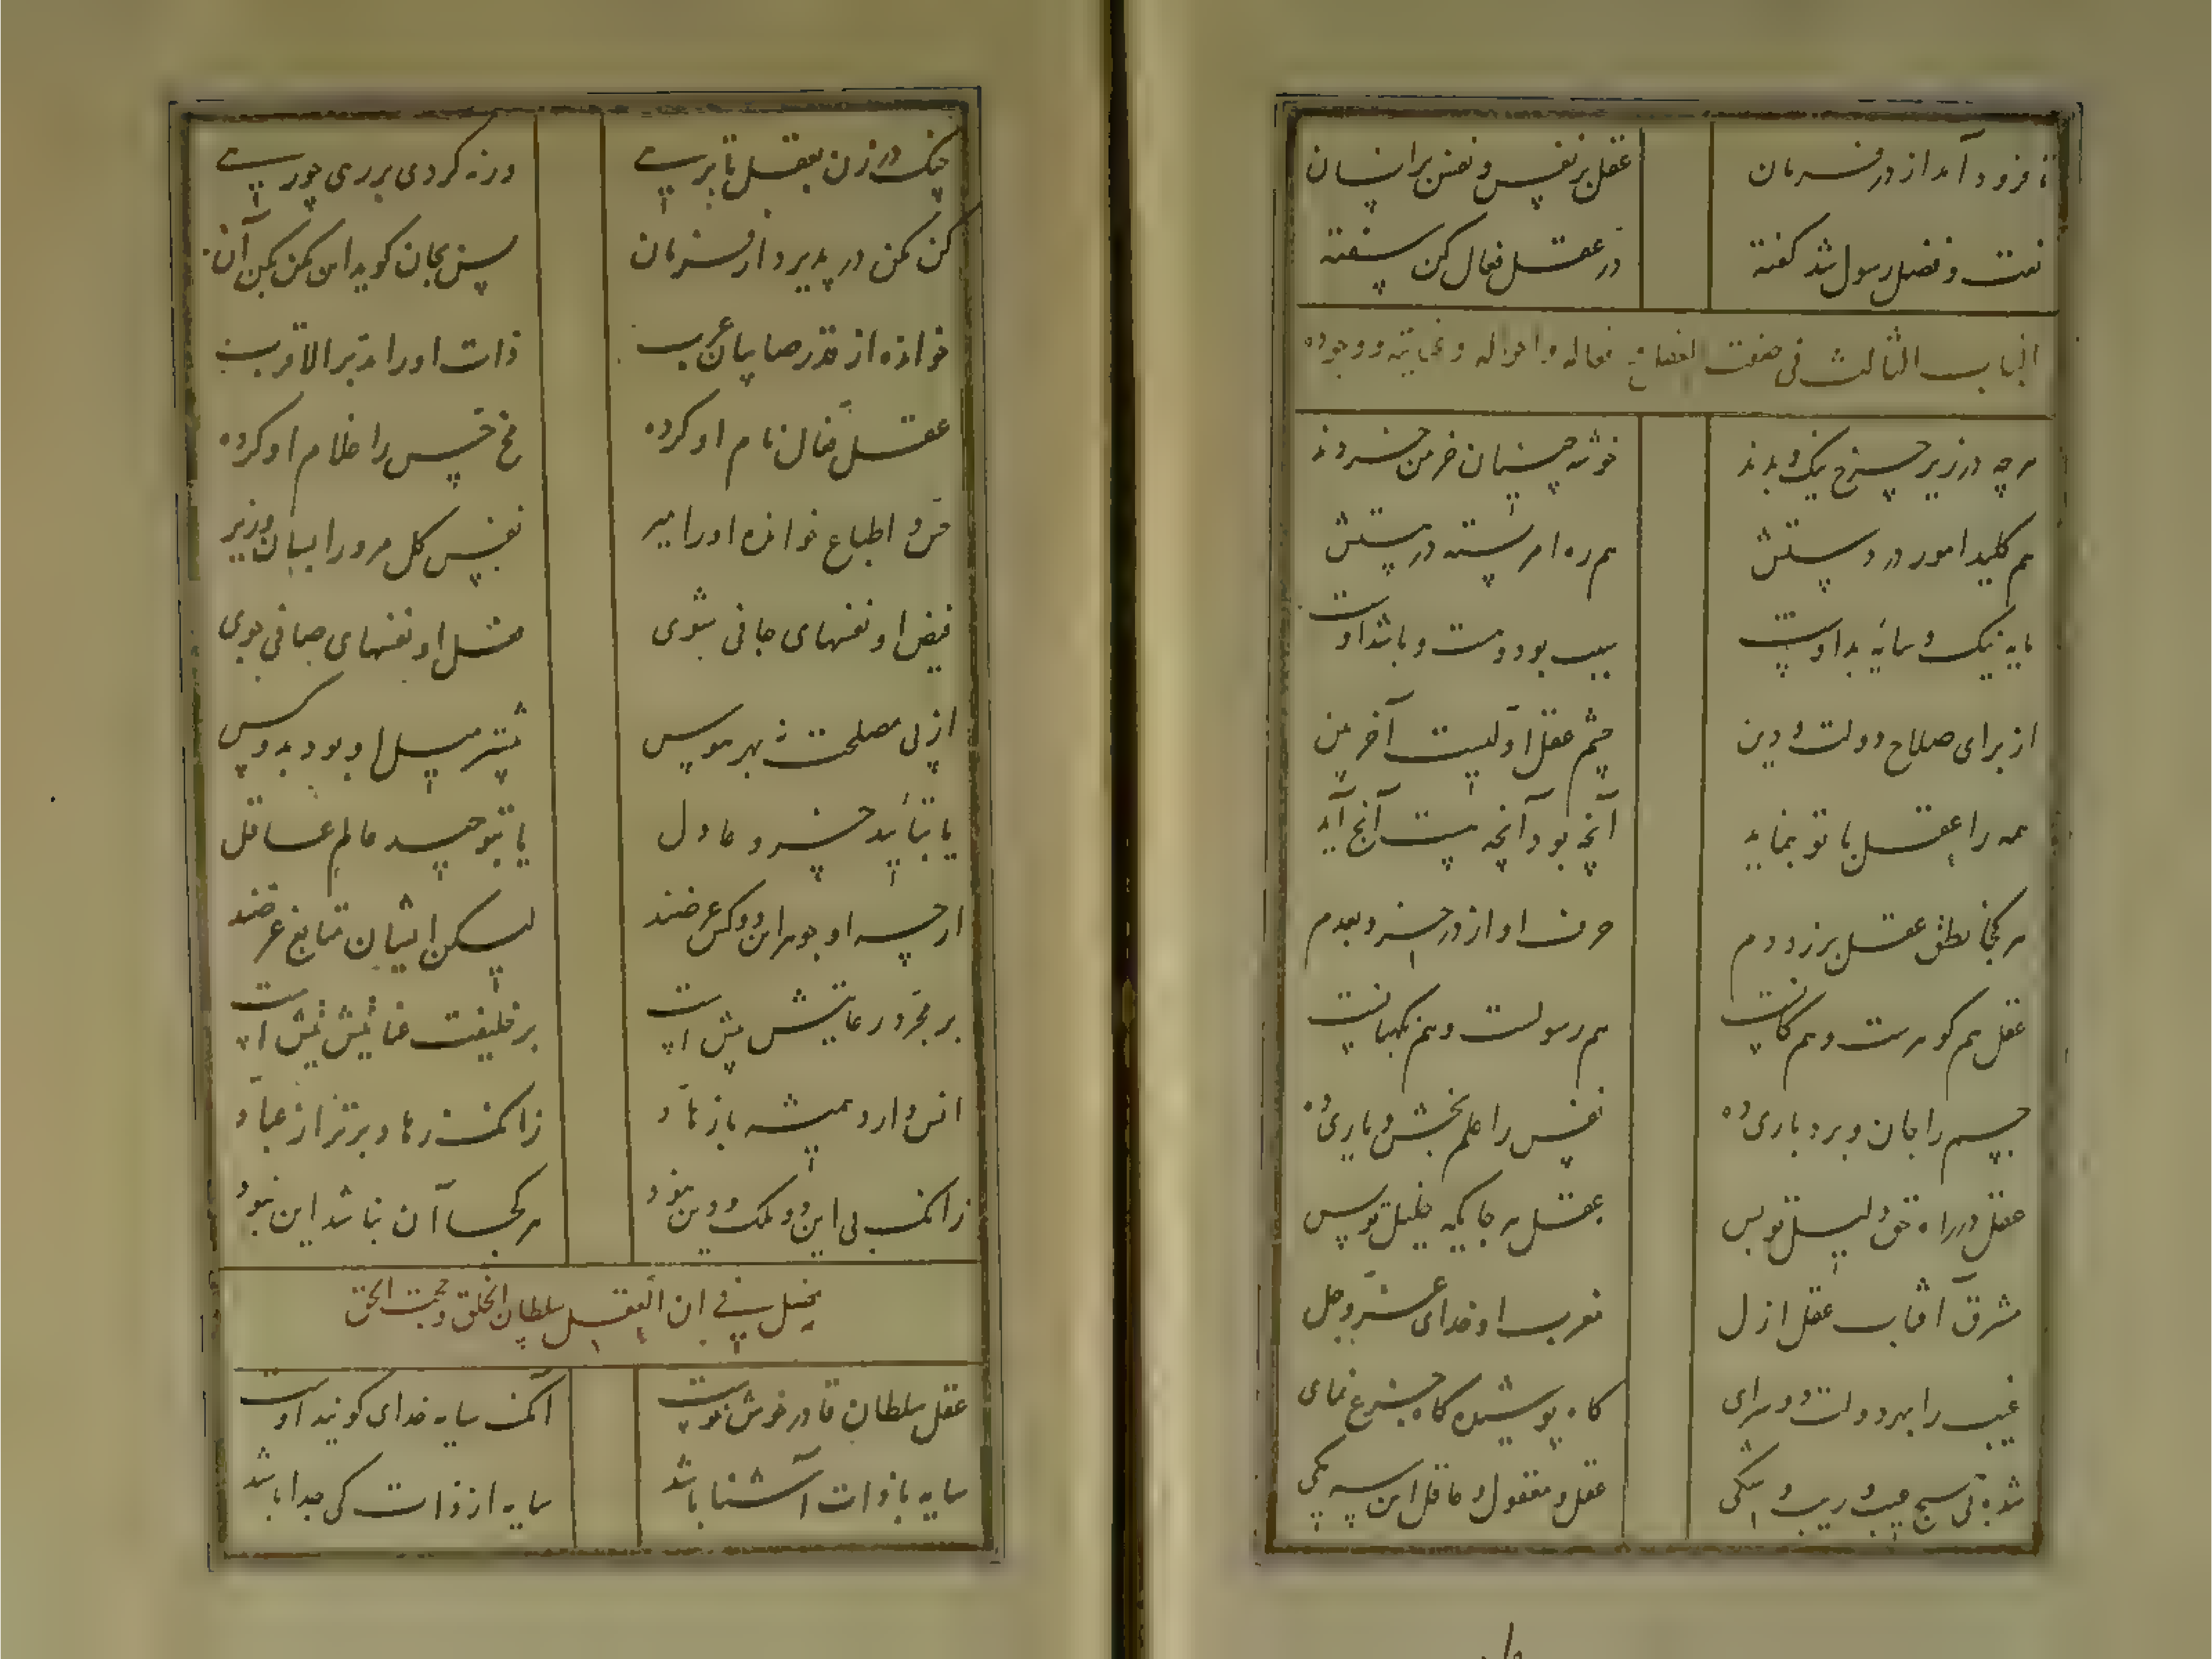 تا فرود آمد از در فرمان عقل بر نفس و نفس بر انسان
نعت و فضل رسول شد گفته در عقل فعال کن سفته
الباب الثالث فی صفت العقل و افعاله و احواله و غایته و وجوده
هرچه در زیر چرخ نیک و بدند خوشه چینان خرمن خردند
هم کلید امور در دستش هم ره امر بسته در هستش
مایه نیک و سایه بد اوست سبب بود و هست و باشد اوست
از برای صلاح دولت و دین چشم عقل اولیست آخر بین
همه را عقل با تو بنماید آنچه بود آنچه هست آنچ آید
هر کجا نطق عقل برزد دم حرف و آواز در خزد بعدم
عقل هم گوهرست و هم کانست هم رسولست و هم نگهبانست
جسم را جان و بردباری ده نفس را علم بخش و یاری ده
عقل در راه حق دلیل تو بس عقل هر جایگه خلیل تو بس
مشرق آفتاب عقل ازل مغرب او خدای عز و جل
غیب را بهر دولت دو سرای گاه پوشیده گاه چرغ نمای
شده بی هیچ عیب و ریب و شکی عقل و معقول و عاقل این سه یکی
چنگ در زن بعقل تا برهی ورنه گردی بهر رهی چو رهی
کن مکن در پذیرد از فرمان پس بجان گوید این مکن بکن آن
خوانده از قدر صاحبان عرب ذات او را مدبر الاقرب
عقل فعال نام او کرده مخ حس را غلام او کرده
حس و اطباع خوانده او را میر نفس کل مر ورا بسان وزیر
فیض او نفسهای جانی شوی فضل او نفسهای صافی جوی
از پی مصلحت نه بهر هوس بیشتر میل او بود بدو کس
یا بتأیید خسرو عادل یا بتوحید عالم عاقل
ارچه او جوهر این دو کس عرضند لیکن ایشان متابع غرضند
بر مجرد رعایتش بیش است بر خلیفت عنایتش بیش است
انس دارد همیشه باز هاد زانکه زهاد برتر از عباد
زانکه بی این دو ملک و دین نبود هر کجا آن نباشد این نبود
تخییل فی ان العقل سلطان الخلق و حجت الحق
عقل سلطان قادر خوش خوست آنکه سایه خدای گویند اوست
سایه با ذات آشنا باشد سایه از ذات کی جدا باشد